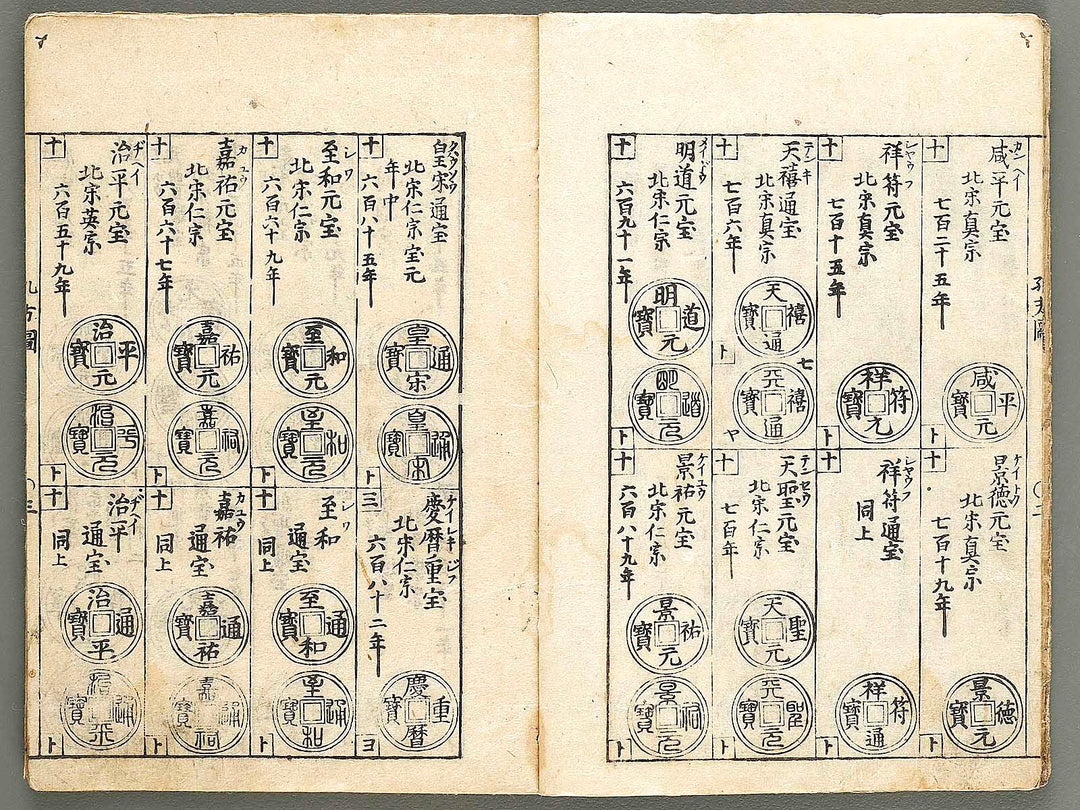 十
咸平元宝
カンヘイ
北宋真宗
七百二十五年
咸平元寳
ト
十
景徳元宝
ケイトク
北宋真宗
七百十九年
景徳元寳
ト
十
祥符元宝
シヤウフ
北宋真宗
七百十五年
祥符元寳
ト
祥符通宝
シヤウフ
同上
祥符通寳
ト
十
天禧通宝
テンキ
北宋真宗
七百六年
天禧通寳
ト
七
天禧通寳
ヤ
十
天聖元宝
テンセウ
北宋仁宗
七百年
天聖元寳
天聖元寳
ト
十
明道元宝
北宋仁宗
六百九十一年
明道元寳
明道元寳
ト
十
景祐元宝
ケイユウ
北宋仁宗
六百八十九年
景祐元寳
景祐元寳
ト
〇二
十
皇宋通宝
クワウソウ
北宋仁宗宝元
年中
六百八十五年
皇宋通寳
皇宋通寳
ト
三
慶暦重宝
ケイレキ
北宋仁宗
六百八十二年
慶暦重寳
ヨ
十
至和元宝
シワ
北宋仁宗
六百六十九年
至和元寳
至和元寳
ト
十
至和
シワ
通宝
同上
至和通寳
至和通寳
ト
十
嘉祐元宝
カユウ
北宋仁宗
六百六十七年
嘉祐元寳
嘉祐元寳
ト
十
嘉祐
カユウ
通宝
同上
嘉祐通寳
嘉祐通寳
ト
十
治平元宝
ヂヘイ
北宋英宗
六百五十九年
治平元寳
治平元寳
ト
十
治平
ヂヘイ
通宝
同上
治平通寳
治平通寳
ト
孔方圖
〇三